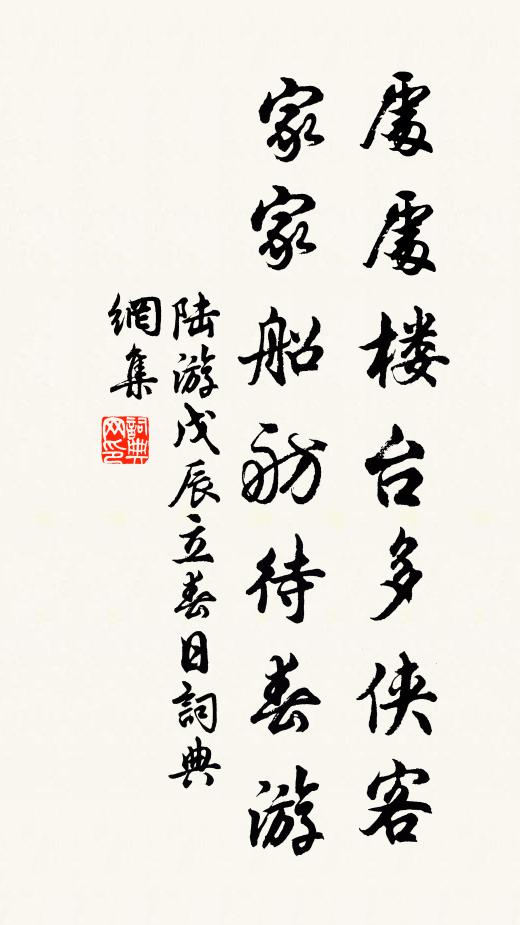 處處楼台多侠客
家家船舫待春游
陆游戊辰立春日詞典
網集
詞典网印